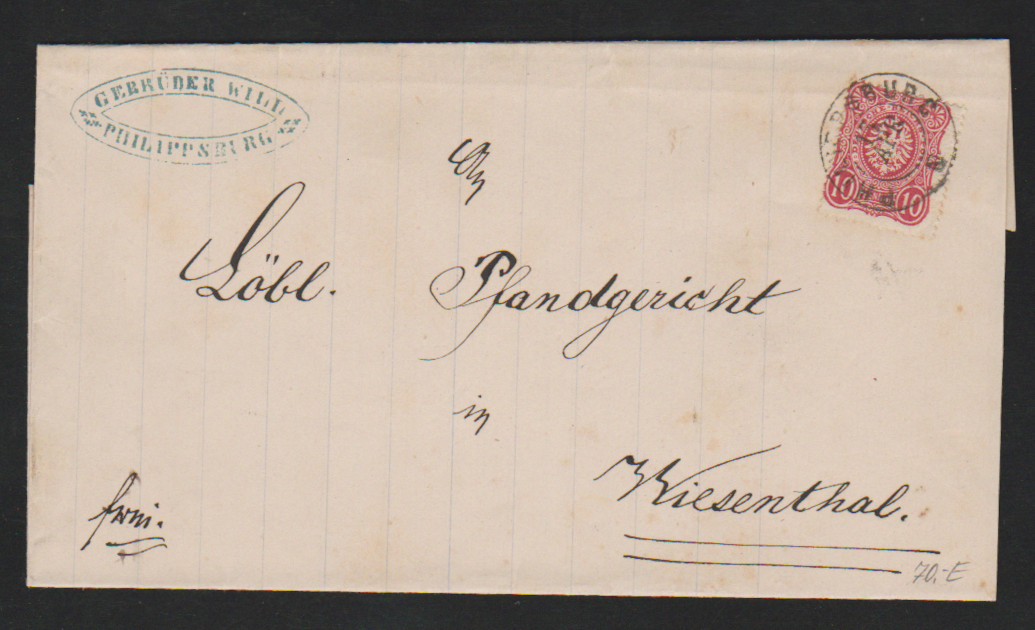 GEBRÜDER WILL
PHILIPPSBURG
10 10
An
Löbl. Pfandgericht
in
Wiesenthal.
frei.
70.-E